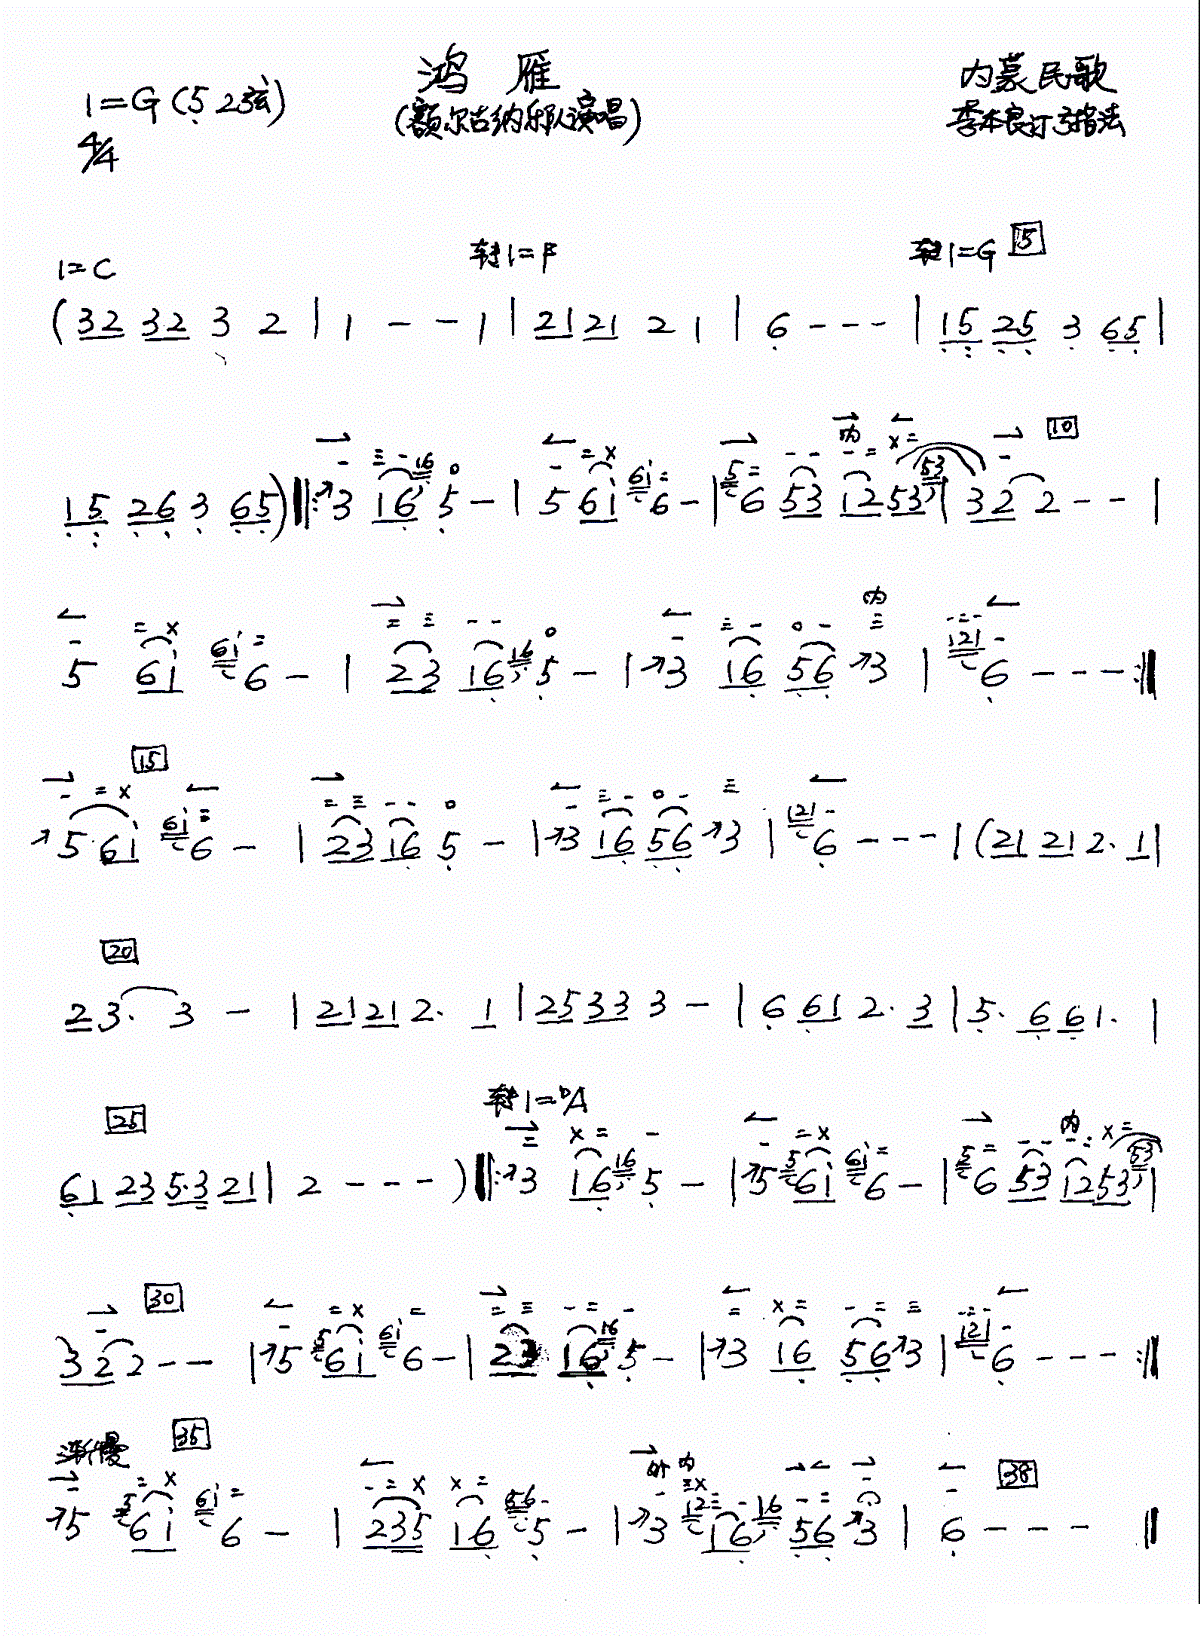 鸿雁
1=G(5 2弦)
(额尔古纳乐队演唱)
内蒙民歌
4/4
李本良订弓指法
1=C 转1=F 转1=G 5
(32 32 3 2 | 1 - - 1 | 21 21 2 1 | 6 - - - | 15 25 3 65 |
内 10
15 26 3 65)‖: 3 16 16 5 - | 5 61 61 6 - | 5 6 53 12 53 53 | 32 2 - - |
内
5 61 61 6 - | 23 16 16 5 - | 3 16 56 3 | 121 6 - - - :‖
15
5 61 61 6 - | 23 16 5 - | 3 16 56 3 | 121 6 - - - | (21 21 2. 1 |
20
23. 3 - | 21 21 2. 1 | 25 33 3 - | 6 61 2. 3 | 5. 6 61. |
25 转1=bA
内
61 23 5.3 21 | 2 - - - )‖: 3 16 16 5 - | 5 5 61 61 6 - | 5 6 53 12 53 53 |
30
32 2 - - | 5 5 61 61 6 - | 23 16 16 5 - | 3 16 56 3 | 121 6 - - - :‖
渐慢 35
外 内 38
5 5 61 61 6 - | 235 16 56 5 - | 3 12 16 16 56 3 | 6 - - - ‖